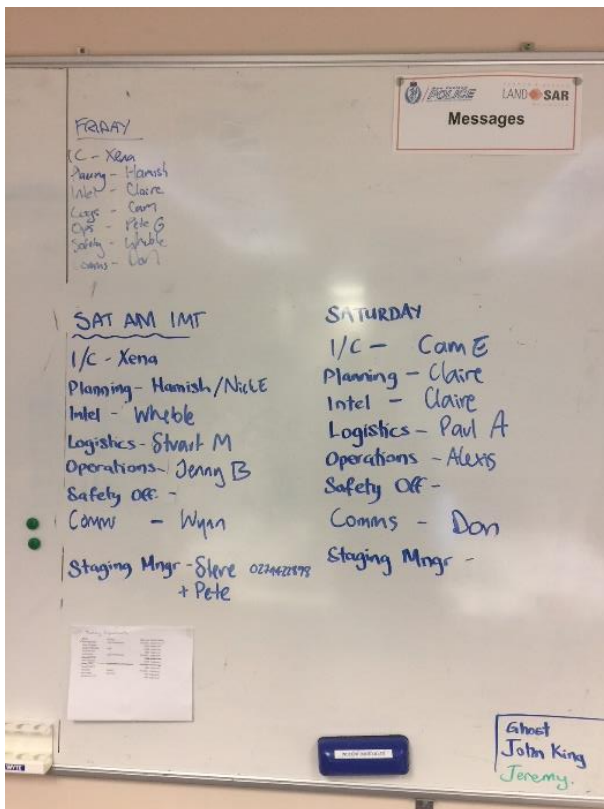 POLICE
LAND SAR
Messages
FRIDAY
IC - Xena
Hamish
Intel - Claire
Logs - Cam
Ops - Pete G
Safety - Wheble
Comms - Don
SAT AM IMT
I/C - Xena
Planning - Hamish/Nick E
Intel - Wheble
Logistics - Stuart M
Operations - Jenny B
Safety Off -
Comms - Wynn
Staging Mngr - Steve
+ Pete
SATURDAY
I/C - Cam E
Planning - Claire
Intel - Claire
Logistics - Paul A
Operations - Alexis
Safety Off -
Comms - Don
Staging Mngr -
Ghost
John King
Jeremy.